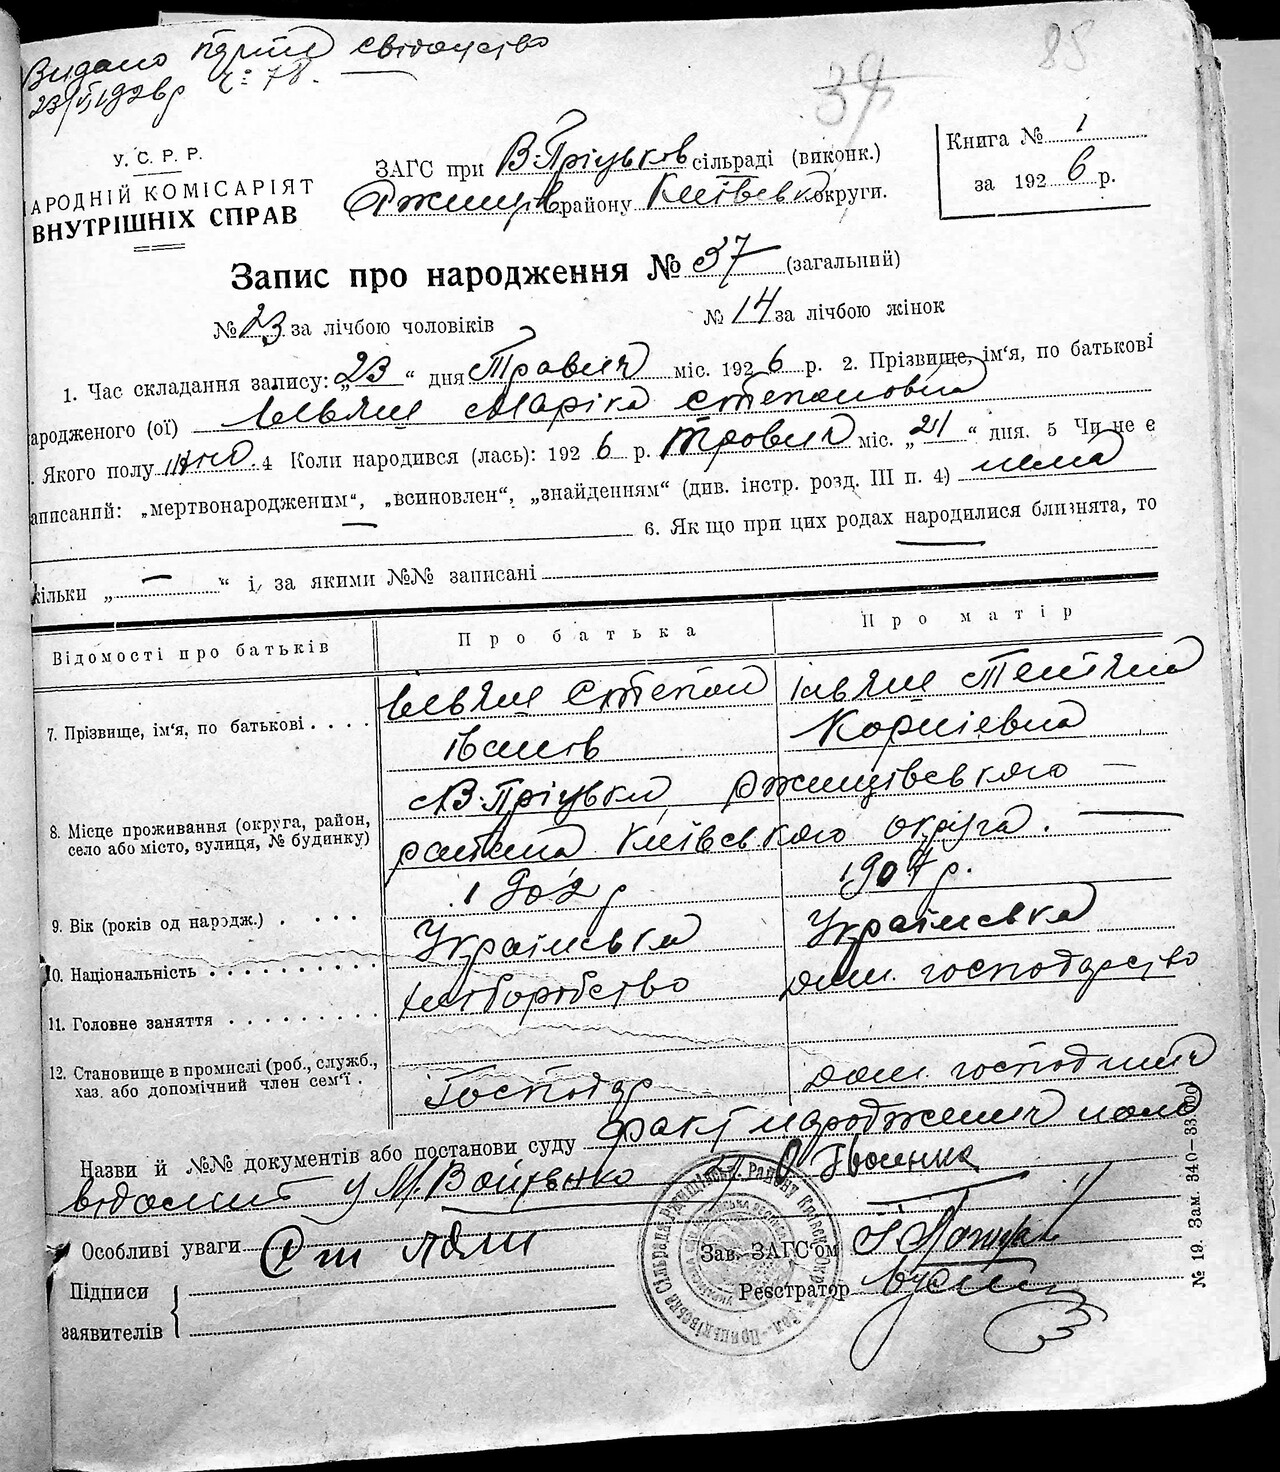 Видано свідоцтво
23/V 1926 р ч: 78.
85
37
У. С. Р. Р.
АРОДНІЙ КОМІСАРІЯТ
ВНУТРІШНІХ СПРАВ
ЗАГС при В-Пріцьков сільраді (виконк.)
Ржищів району Київськ округи.
Книга № 1
за 1926 р.
Запис про народження № 37 (загальний)
№ 23 за лічбою чоловіків № 14 за лічбою жінок
1. Час складання запису: „23“ дня Травня міс. 1926 р. 2. Прізвище, ім‘я, по батькові
ародженого (ої) Марія Степановна
. Якого полу жін. 4 Коли народився (лась): 1926 р. Травня міс. „21“ дня. 5 Чи не є
аписаний: „мертвонародженим“, „всиновлен“, „знайденням“ (див. інстр. розд. III п. 4) нема
6. Якщо при цих родах народилися близнята, то
кільки „ — “ і, за якими №№ записані —
Відомості про батьків Про батька Про матір
7. Прізвище, ім‘я, по батькові . . . . Степан Іванів Тетяна Корніевна
8. Місце проживання (округа, район, село або місто, вулиця, № будинку) В-Пріцьки Ржищівського —
района Київського округа. —
9. Вік (років од народж.) . . . . 1902 р 1907 р.
10. Національність . . . . . . . . . . Українська Українська
11. Головне заняття . . . . . . . . . хліборобство дом. господарство
12. Становище в промислі (роб., служб., хаз. або допомічний член сем‘ї . Господар дом. господиня
Назви й №№ документів або постанови суду факт народження
відомий у М. Войтенко Іванина
Особливі уваги
Зав. ЗАГС‘ом
Підписи
заявителів
Реєстратор
№ 19. Зам 340—33.000